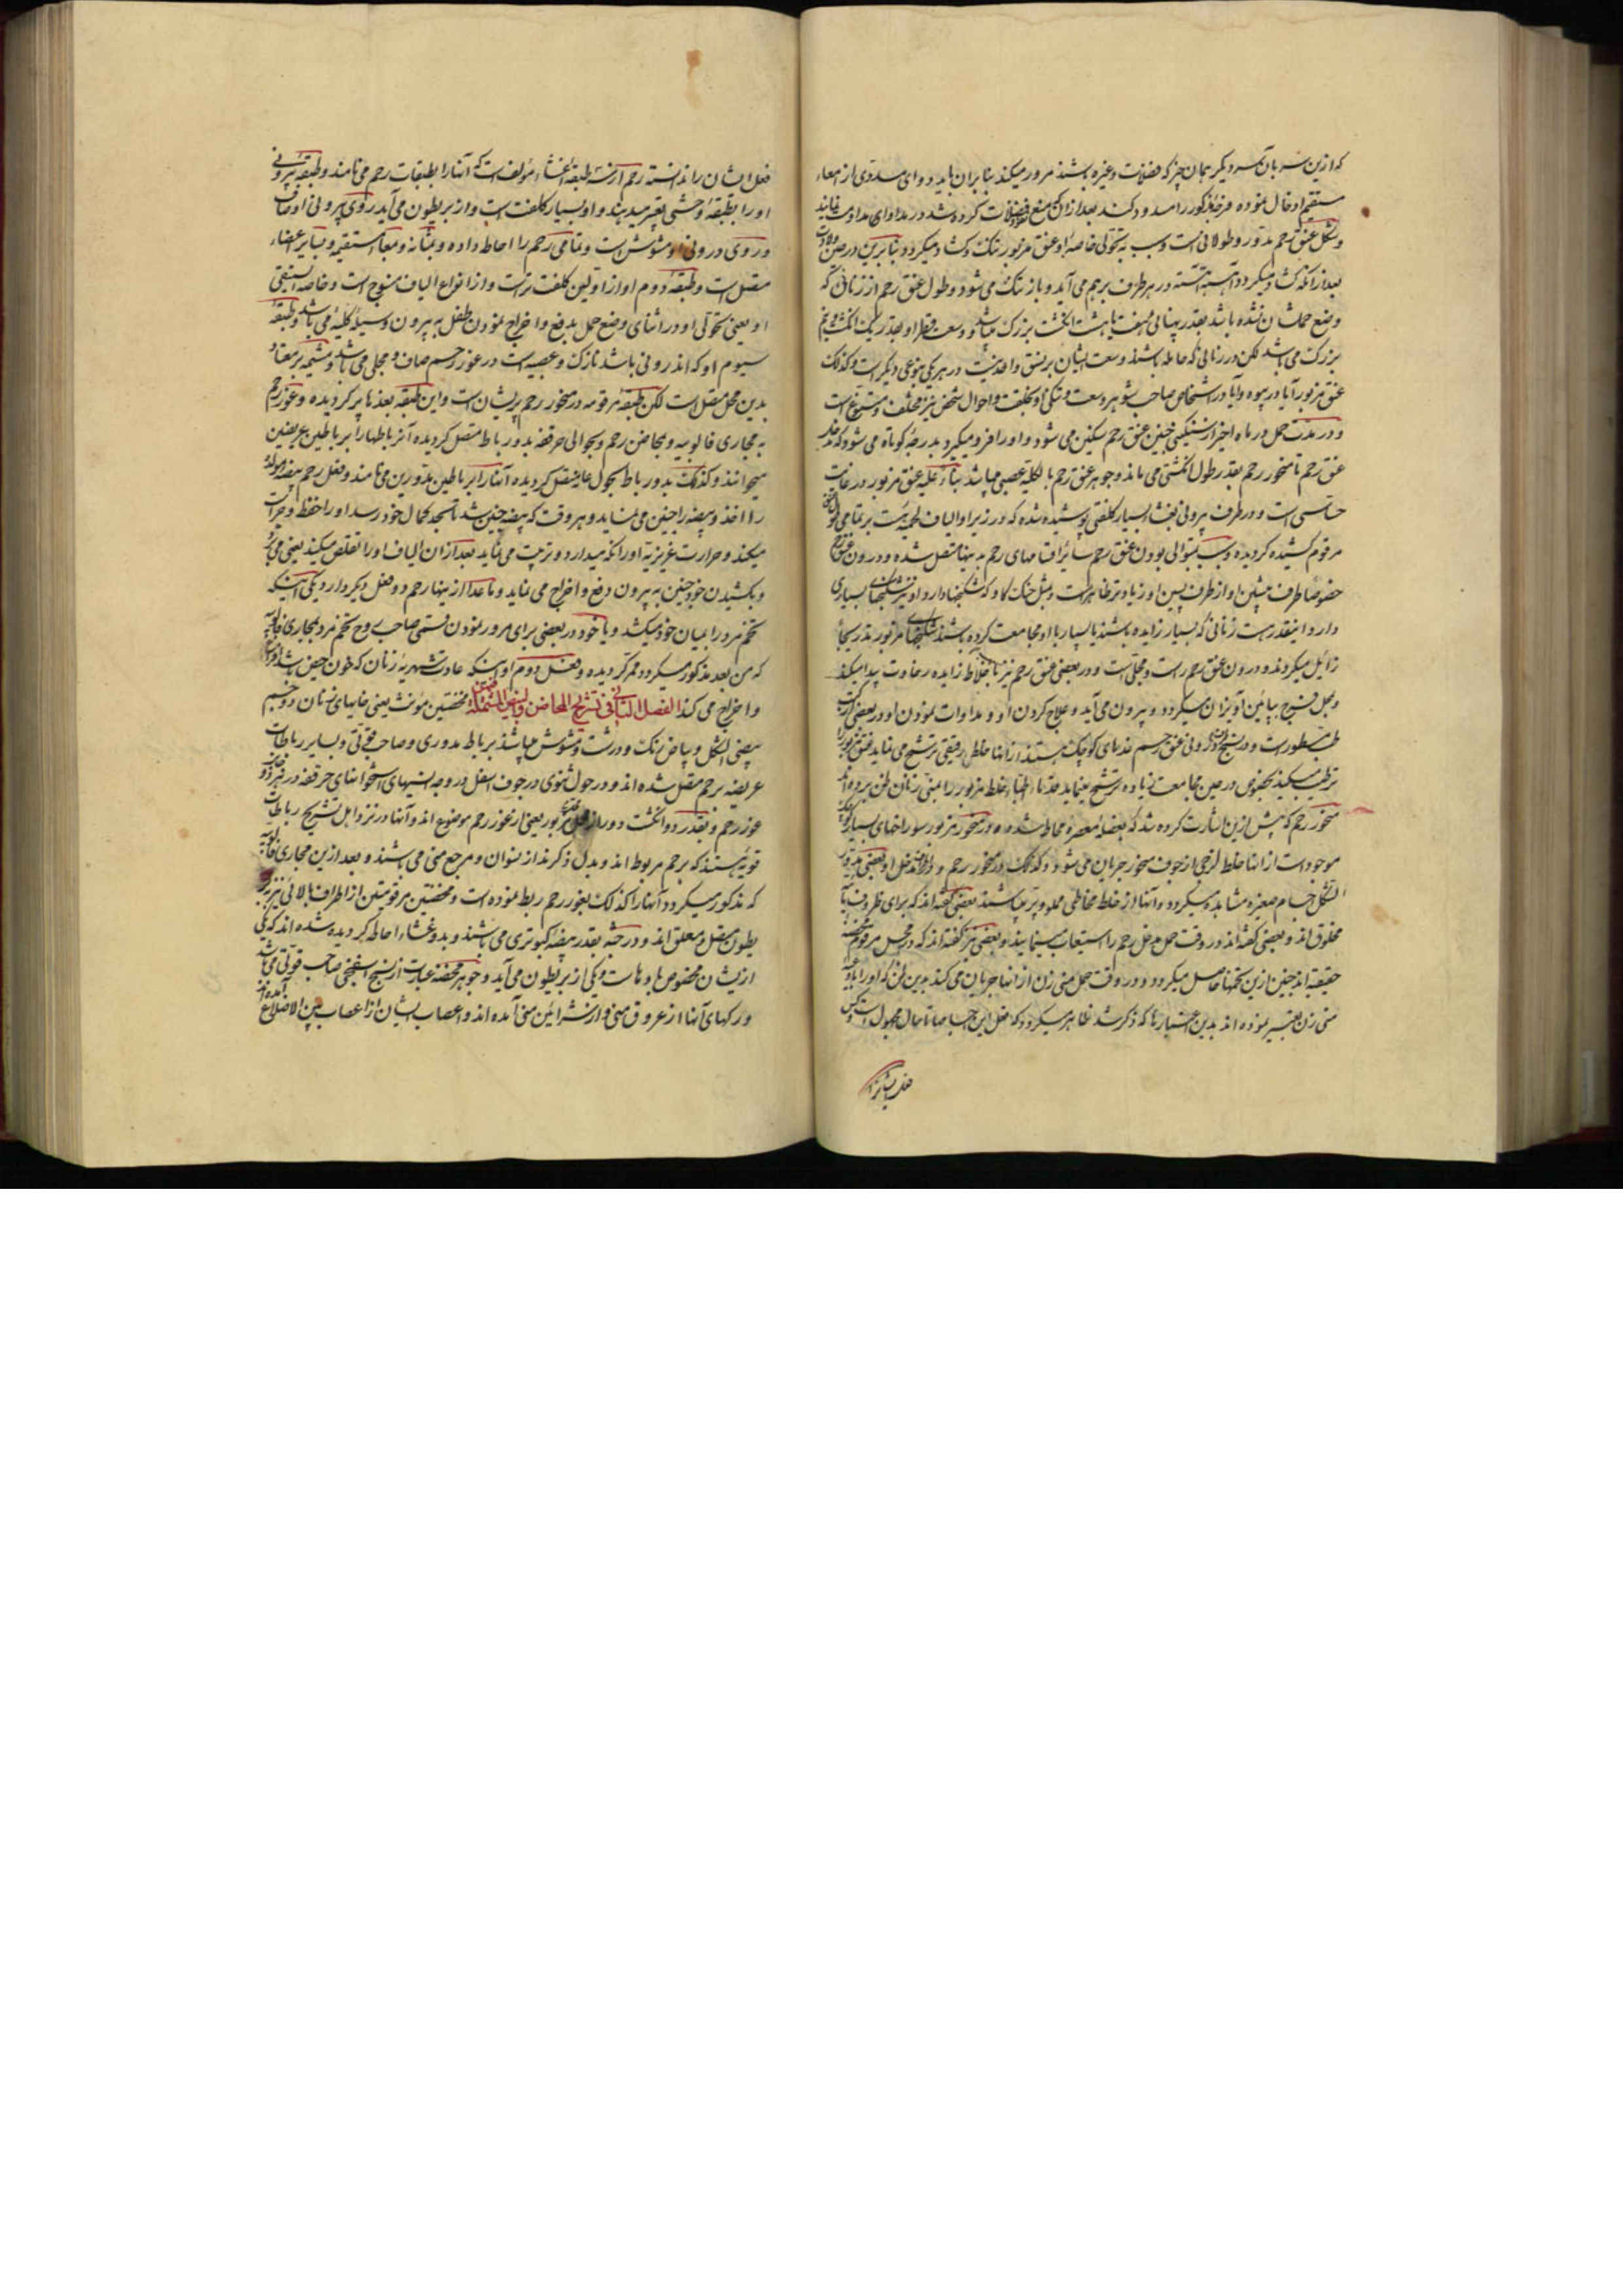 که ازین سر بآن سر دیگر همان چیز که فضلات وغیره باشند مرور میکند بنا بران باید دوای مسدوی از امعاء
مستقیم ادخال نموده فرجهٔ مذکور را مسدود کنند بعد ازان که منع فضلات کرده شد در مداوای
وشکل عنق رحم مدور وطولانی است وسبب به تحولی خاصهٔ او عنق مزبور تنک وکشاد میکردد بنابرین در حین ولادت
بعد از آنکه کشاد میکردد آهسته آهسته در هر طرف برهم می آید وباز تنک می شود وطول عنق رحم از زنان که
وضع حملشان نشده باشد بقدر پهنائی هفت یا هشت انکشت بزرک میباشد ووسعت قطر او بقدر یک انکشت
بزرک می باشد لکن در زنانی که حامله باشند وسعت ایشان بر نسق واحد نیست در هر یکی بنوعی دیکر است وکذلک
عنق مزبور آیا در بیوه وآیا در اشخاص صاحب شوهر وسعت وتنکی او بخلقت واحوال شخص نیز مختلف ومتنوع است
ودر مدت حمل در ماه اخیر از سنکینی جنین عنق رحم سنکین می شود واو را فرو میکیرد بدرجهٔ کوتاه می شود که
عنق رحم تا منخور رحم بقدر طول انکشتی می ماند وجوهر عنق رحم بالکلیه عصبی میباشد بناءً علیه عنق مزبور در غایت
حساسی است ودر طرف بیرونی بغشاء بسیار کلفتی پوشیده شده که در زیر او الیاف لحمیه است بر تمامی
مرقوم کشیده کردیده وسبب بتوالی بودن عنق رحم سائر اقسامهای رحم به بینها متصل شده ودرون عنق
خصوصا طرف پیشین او از طرف پسین او زیاده تر ظاهر است ومثل حنک کاو که شکنجها دارد او نیز شکنجهای بسیاری
دارد اینقدر هست زنانی که بسیار زایده باشند یا بسیار با او مجامعت کرده باشند شکنجهای مزبور بتدریجا
زائل میکردند ودرون عنق رحم راست ومجلّی است ودر بعضی عنق رحم نیز باخلاط زایده رخاوت پیدا میکند
وبمحل فرج بپائین آویزان میکردد وبیرون می آید وعلاج کردن او ومداوات نمودن او در بعضی کتب
طب مسطور است ودر نسج درونی عنق رحم غدهای کوچک هستند از انها خلط رقیقی ترشح می نماید عنق مزبور را
ترطیب میکند بخصوص در حین مجامعت زیاده ترشح مینماید قدماء اطباء خلط مزبور را بمنی زنان ظن برده اند
منخور رحم که پیش ازین اشارت کرده شد که بعضلهٔ معصره محاط شده ودر منخور مزبور سوراخهای بسیار کوچک
موجود است از انها خلط لزجی از جوف منخور جریان می شود وکذلک در منخور رحم ودر مدخل او بعضی
الشکل اجسام صغیره مشاهده میکردد وآنها از خلط مخاطی مملو وپر میباشند بعضی کفته اند که برای ظروف
مخلوق اند وبعضی کفته اند در وقت حمل مدخل رحم را استیعاب مینمایند وبعضی نیز کفته اند که در محل مرقوم
حقیقیه اند جنین ازین تخمها حاصل میکردد ودر وقت حمل منی زن از انها جریان می کند بدین ظن که او را
منی زن تعبیر نموده اند بدین اعتبارها که ذکر شد ظاهر میکردد که فعل این اجسام تا حال مجهول است وکس
فعل ایشانرا
فعل ایشان را ندانسته رحم از سه طبقهٔ غشاء مؤلف است که آنها را بطبقات رحم می نامند وطبقهٔ بیرونی
او را بطبقهٔ وحشی تعبیر میدهند واو بسیار کلفت است واز بریطون می آید روی بیرونی او صاف
وروی درونی او مشوش است وتمامی رحم را احاطه داده وبمثانه وبمعاء مستقیم وبسایر اعضاء
متصل است وطبقهٔ دوم او از اولین کلفت تر است واز انواع الیاف منسوج است وخاصهٔ
او یعنی تحولی او در اثنای وضع حمل بدفع واخراج نمودن طفل به بیرون وسیلهٔ کلیه می باشد وطبقهٔ
سیوم او که اندرونی باشد نازک وعصبیه است در غور رحم صاف ومجلی می باشد ومشیمه بر معتاد
بدین محل متصل است لکن طبقهٔ مرقومه در منخور رحم پریشان است واین طبقه بعدها پر کردیده وغور رحم
به مجاری فالوبیه وبمحاضن رحم وبحوالی حرقفه بدو رباط متصل کردیده آنر باطها را برباطین عریضین
میخوانند وکذلک بدو رباط بحول عانه متصل کردیده آنها را برباطین مدورین می نامند وفعل رحم بیضهٔ مولد
را اخذ وبیضه را جنین می نماید وهر وقت که بیضه جنین شد تا بحد کمال خود رسد او را حفظ وحراست
میکند وحرارت غریزیهٔ او را نکه میدارد وتربیت می نماید بعد ازان الیاف او را تقلص میکند یعنی
وبکشیدن خود جنین به بیرون دفع واخراج می نماید وما عدا از اینها رحم دو فعل دیکر دارد یکی اینکه
تخم مرد را بمیان خود میکشد ویا خود در بعضی برای مرور نمودن قسمی صاحب روح تخم مرد بمجاری فالوبیه
که من بعد مذکور میکردد ممر کردیده وفعل دوم او اینکه عادت شهریهٔ زنان که خون حیض باشد
واخراج می کند الفصل الثانی فی تشریح المحاضن والبیض المتصلة محضنتین مؤنث یعنی خایهای زنان دو جسم
بیضی الشکل وبیاض رنک ودرشت ومشوش میباشند برباط مدوری وصاحب قوتی وبسایر رباطات
عریضه برحم متصل شده اند ودر حول ثنوی در جوف اسفل در وجه انسیهای استخوانهای حرقفه در
غور رحم وبقدر دو انکشت دور از محل مزبور یعنی از غور رحم موضوع اند وآنها در نزد اهل تشریح رباطات
قویه هستند که برحم مربوط اند وبدل ذکر اند از نسوان ومرجع منی می باشند وبعد ازین مجاری فالوبیه
که مذکور میکردد آنها را کذلک بغور رحم ربط نموده است ومحضنتین مرقومتین از اطراف بالائی نیز بر
بطون متصل ومعلق اند ودر جثه بقدر بیضهٔ کبوتری می باشند وبدو غشاء احاطه کردیده شده اند که یکی
ازیشان مخصوص بآنهاست ویکی از بریطون می آید وجوهر محضنه عبارت از نسج اسفنجی صاحب قوتی می باشد
ورکهای آنها از عروق منی واز شرائین منی آمده اند واعصاب ایشان از اعصاب بین الاضلاع آمده اند